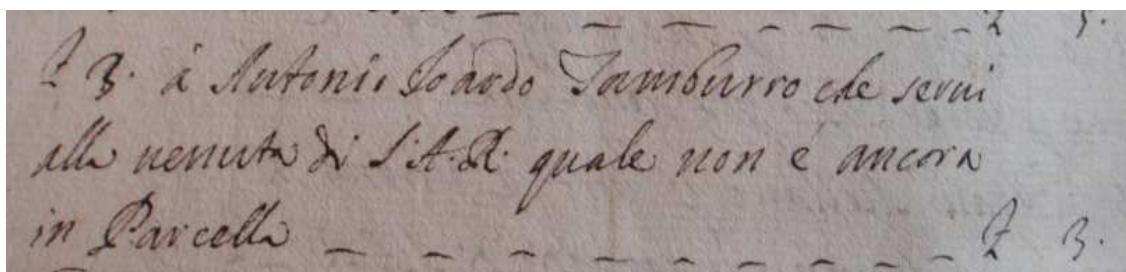 3. à Antonio Tamburro che servi
alla venuta di S.A.R. quale non é ancora
in Parcella 3.